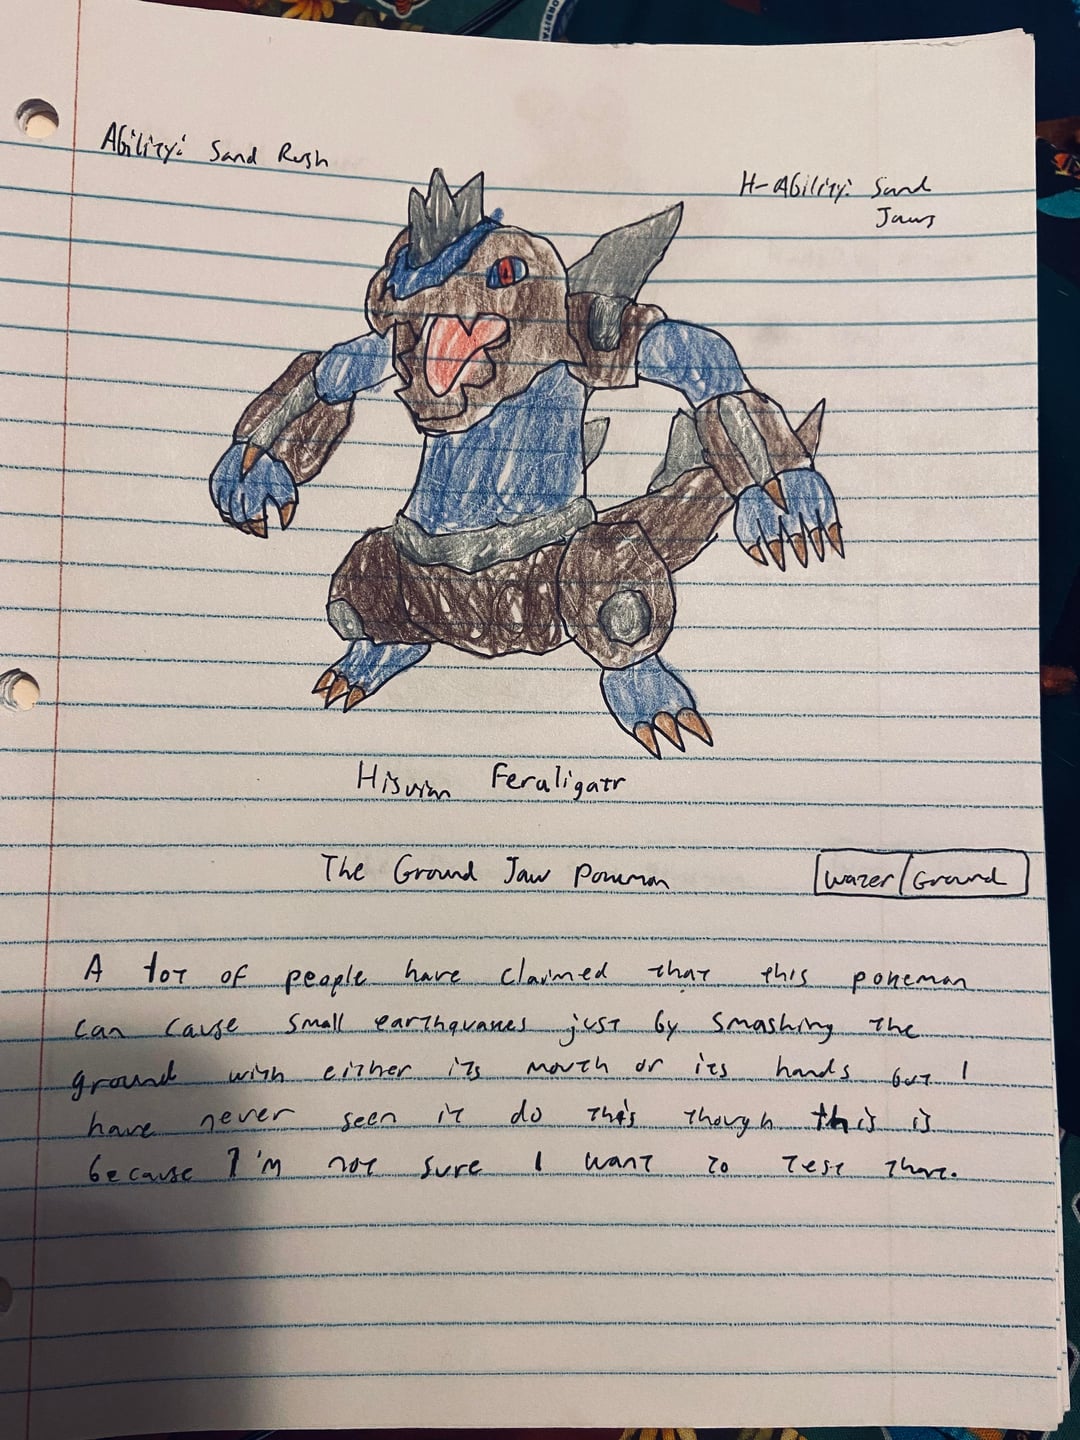 Ability: Sand Rush
H-Ability: Sand
Jaws
Hisuian Feraligatr
The Ground Jaw Pokemon
Water/Ground
A lot of people have claimed that this pokemon
can cause small earthquakes just by smashing the
ground with either its mouth or its hands but I
have never seen it do this though this is
because I'm not sure I want to test that.